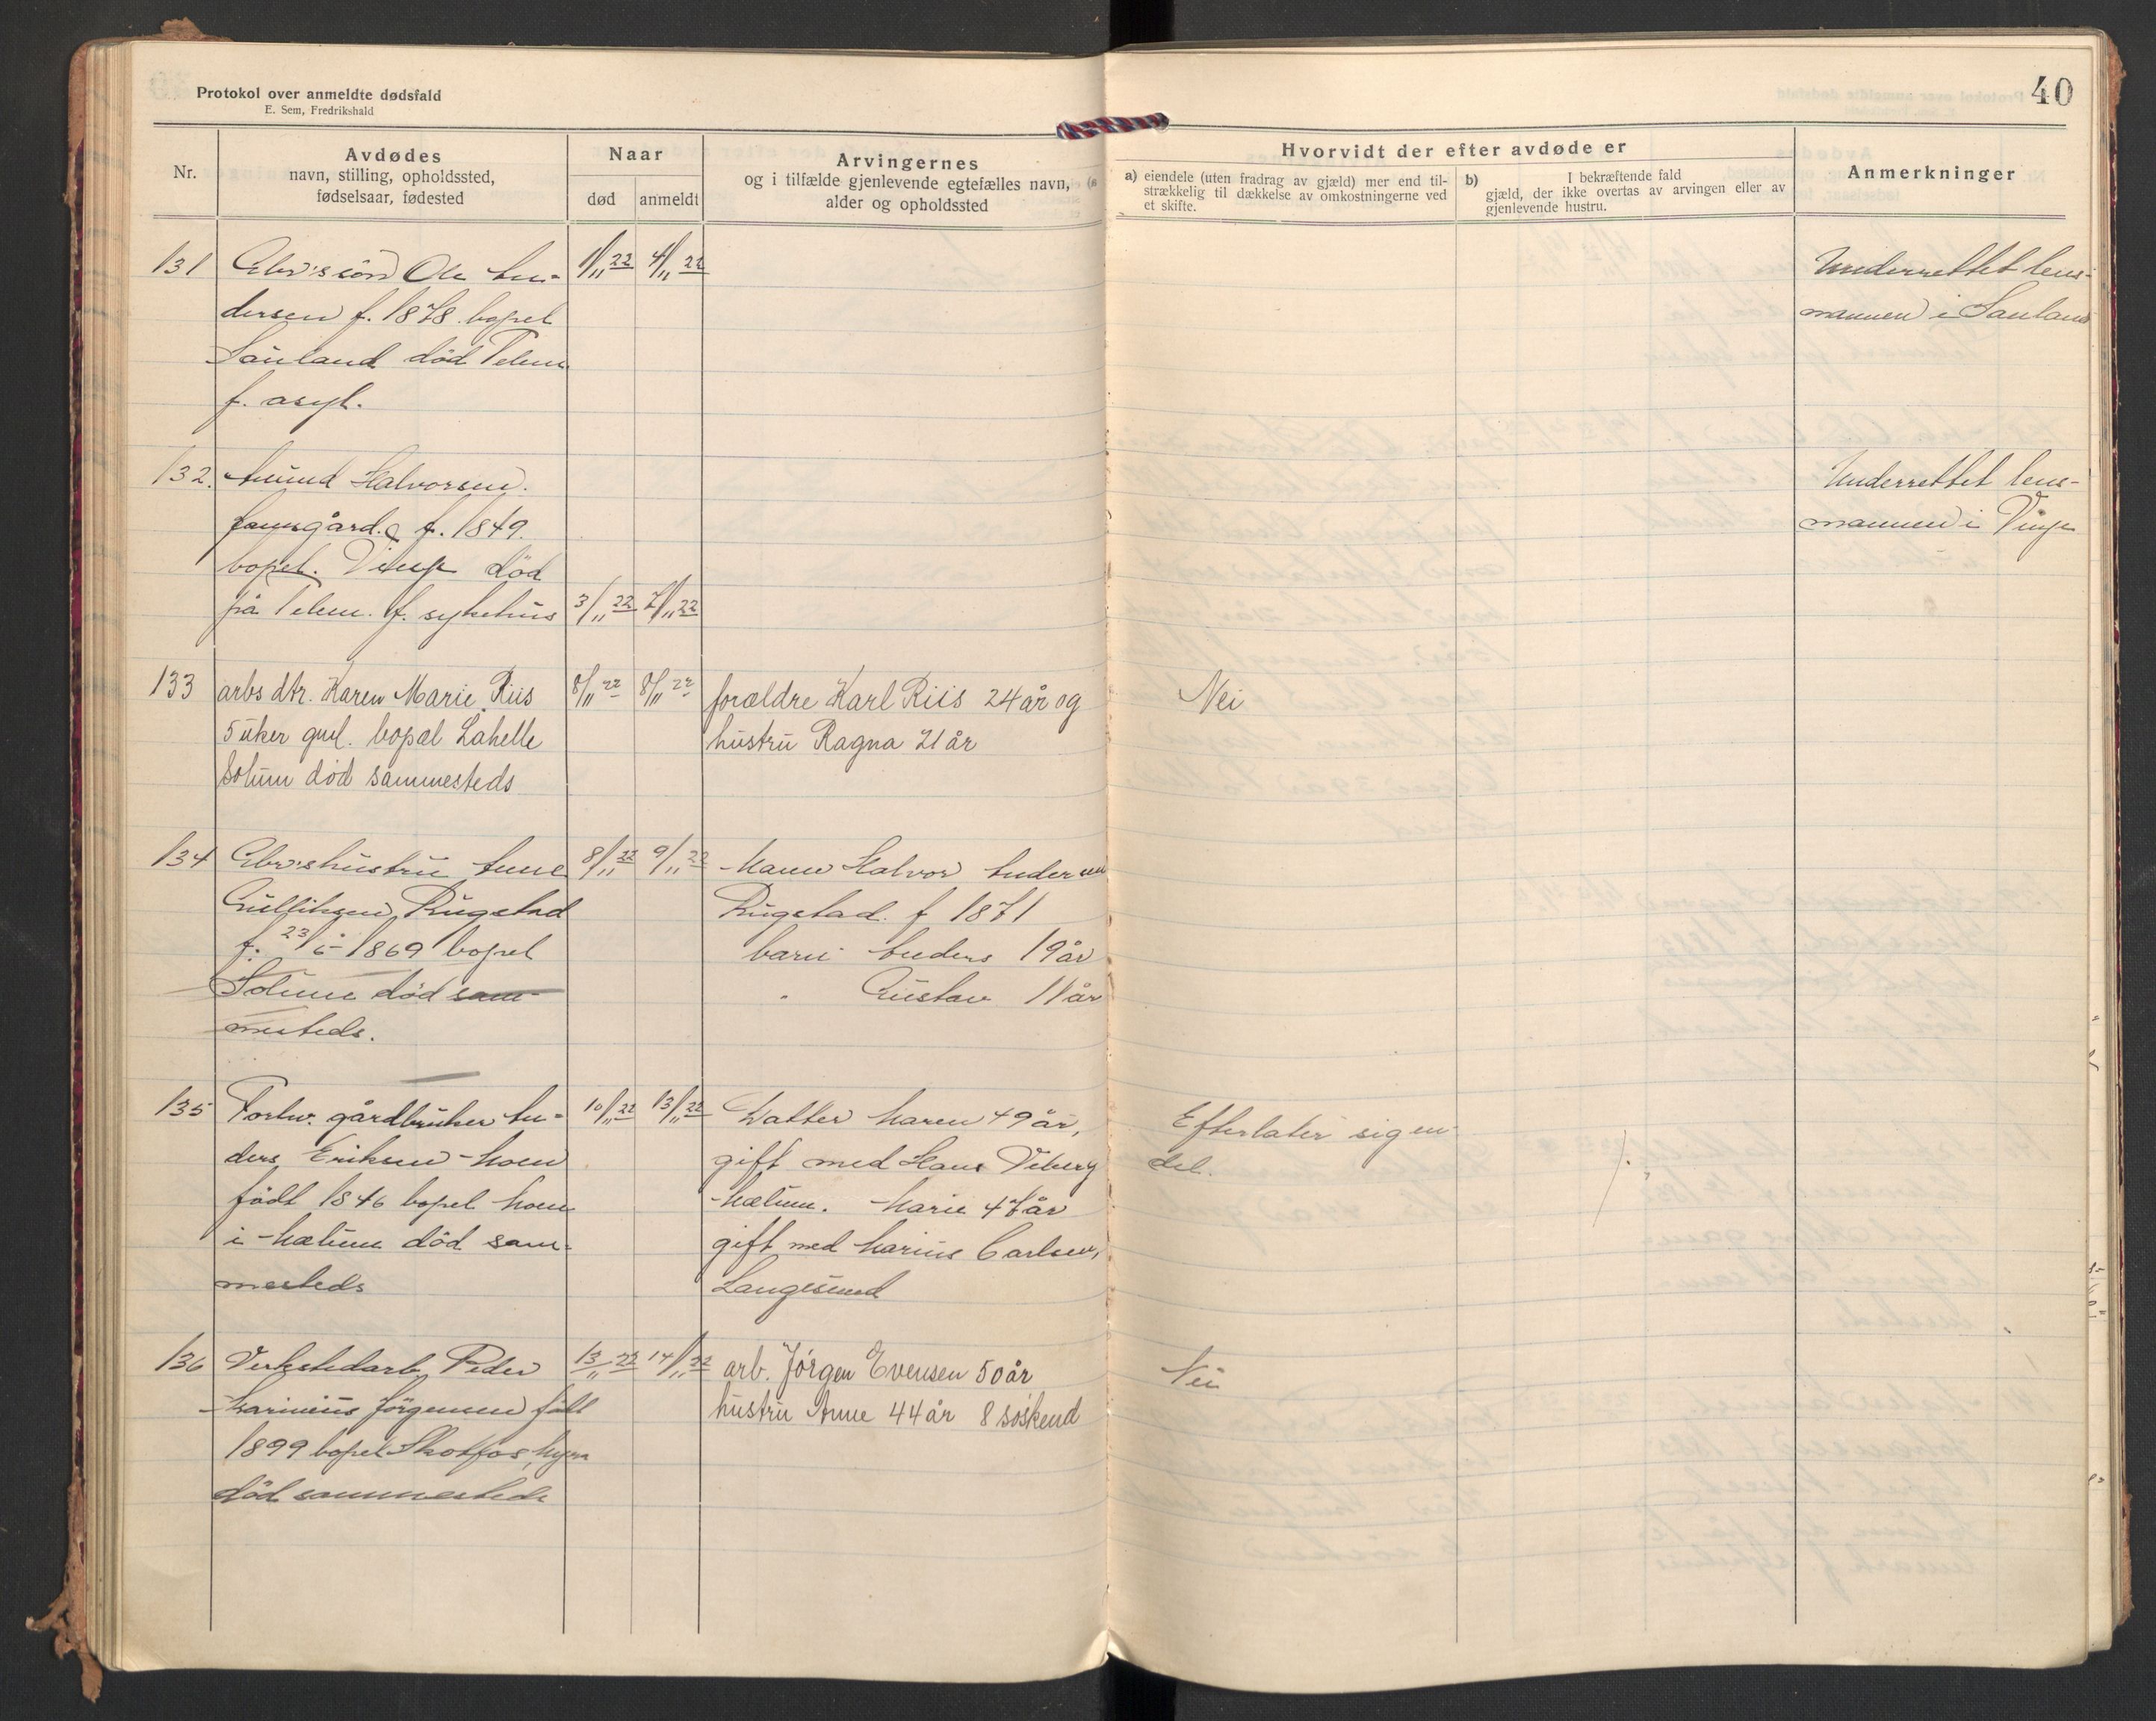 Protokol over anmeldte dødsfald
E. Sem, Fredrikshald
40
Nr.
Avdødes
navn, stilling, opholdssted,
fødselsaar, fødested
Naar
død
anmeldt
Arvingernes
og i tilfælde gjenlevende egtefælles navn,
alder og opholdssted
Hvorvidt der efter avdøde er
a) eiendele (uten fradrag av gjæld) mer end til-
strækkelig til dækkelse av omkostningerne ved
et skifte.
b) I bekræftende fald
gjæld, der ikke overtas av arvingen eller av
gjenlevende hustru.
Anmerkninger
131 Ole An- 1/11 22 4/11 22 Underrettet lens-
dersen f. 1878 bopel mannen i Sauland
Sauland død Telem
f. asyl.
132. Amund Halvorsen. Underrettet lens-
f. 1849. mannen i Vinje
bopel. Vinje död
på Telem. f. sykehus 3/11 22 7/11 22
133 arbs dtr. Karen Marie Riis 8/11 22 8/11 22 forældre Karl Riis 24 år og Nei
5 uker gml. bopæl Lahelle hustru Ragna 21 år
Solum død sammesteds
134 Arb:shustru Anne 8/11 22 9/11 22 Mann Halvor Andersen
Gulliksen Rugstad Rugstad. f 1871
f. 23/ 1869 bopel barn Anders 19 år
Solum död sam- " Gustav 11 år
mesteds.
135 Forhv. gårdbruker An- 10/11 22 13/11 22 Datter Maren 49 år, Efterlater sig en
ders Eriksen Moen gift med Hans Viberg del.
född 1846 bopel Moen Mælum. Marie 47 år
i Mælum död sam- gift med Marius Carlsen,
mesteds Langesund
136 Verkstedarb. Peder 13/11 22 14/11 22 arb. Jörgen Evensen 50 år Nei
Marinius Jörgensen født hustru Anne 44 år 8 søskend
1899 bopel Skotfos, Myra
död sammesteds